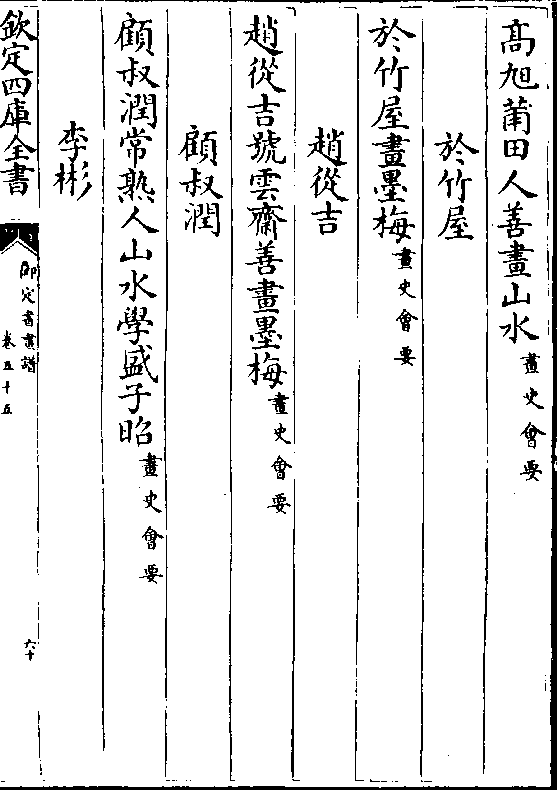 高旭莆田人善畫山水畫史會要
於竹屋
於竹屋畫墨梅畫史會要
趙從吉
趙從吉號雲齋善畫墨梅畫史會要
顧叔潤
顧叔潤常熟人山水學盛子昭畫史會要
李彬
欽定四庫全書
御定書畫譜
卷五十五
六十